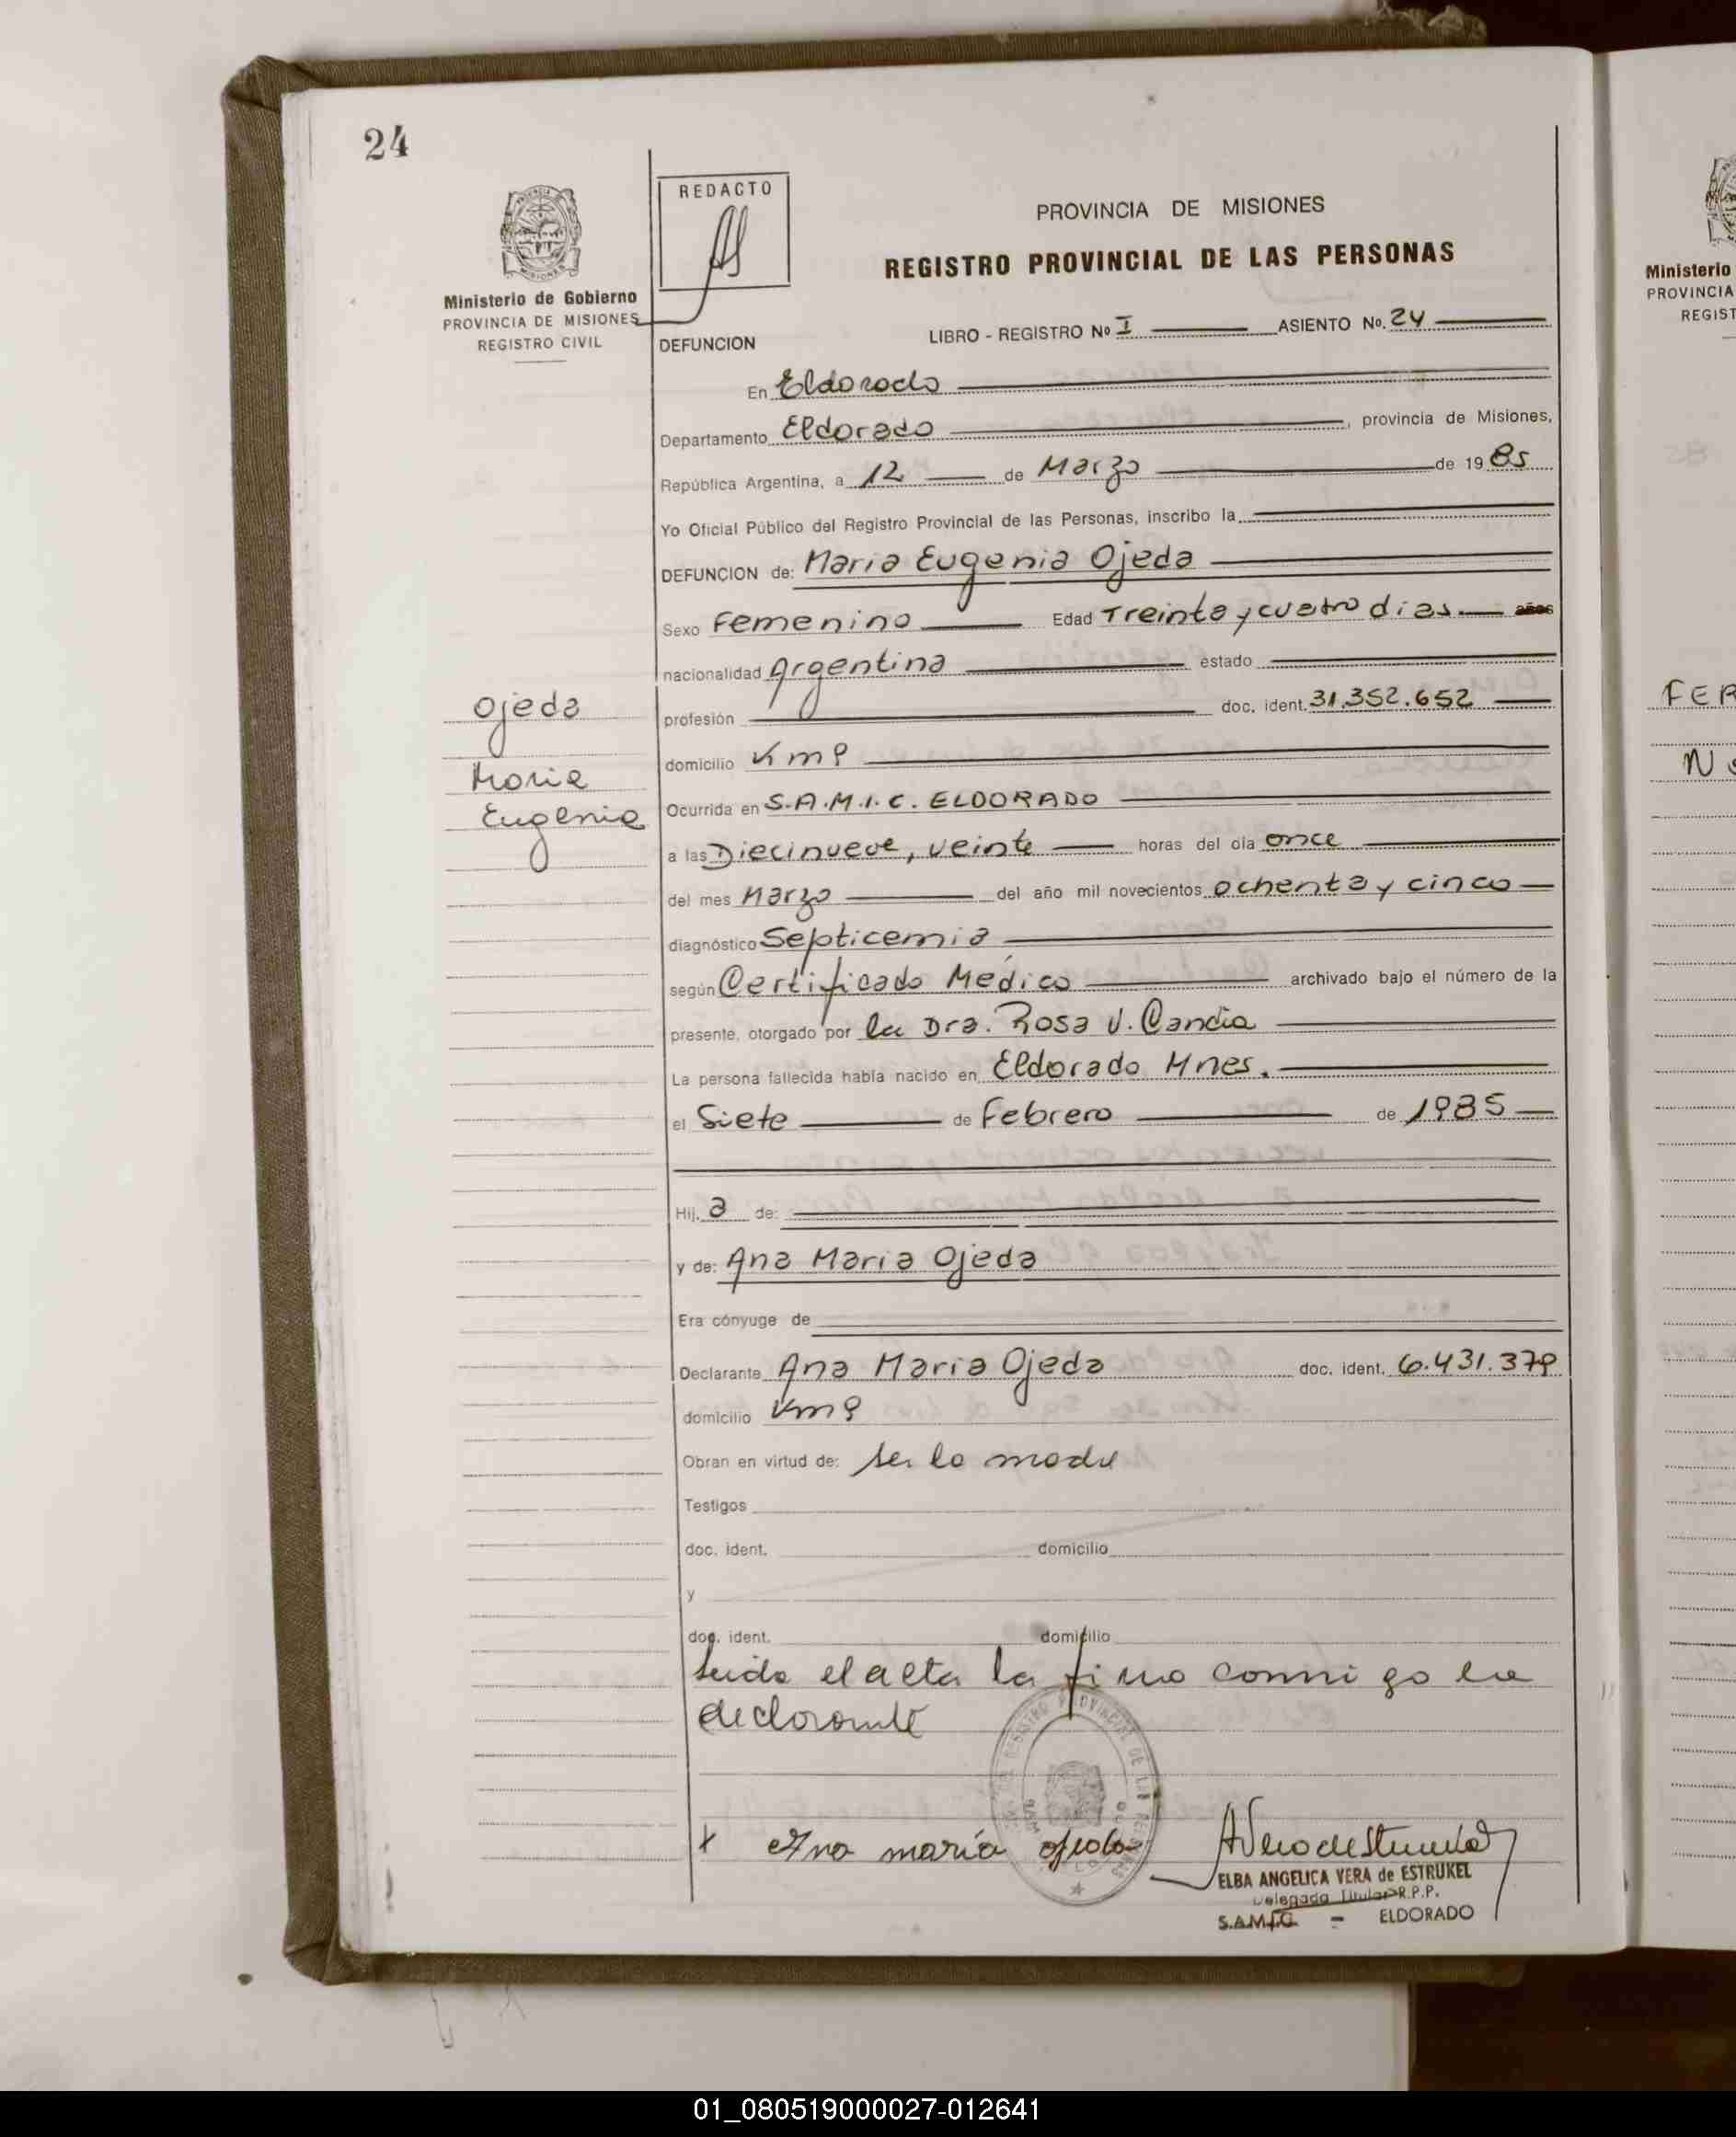 24
REDACTO
Ministerio de Gobierno
PROVINCIA DE MISIONES
REGISTRO CIVIL
PROVINCIA DE MISIONES
REGISTRO PROVINCIAL DE LAS PERSONAS
LIBRO - REGISTRO Nº I ASIENTO No. 24
DEFUNCION
En Eldorado
Departamento Eldorado, provincia de Misiones,
República Argentina, a 12 de Marzo de 1985
Yo Oficial Público del Registro Provincial de las Personas, inscribo la
DEFUNCION de: Maria Eugenia Ojeda
Sexo Femenino Edad Treinta y cuatro dias años
nacionalidad Argentina estado
profesión doc. ident. 31.352.652
domicilio Km 9
Ocurrida en S.A.M.I.C. ELDORADO
a las Diecinueve, veinte horas del día once
del mes Marzo del año mil novecientos ochenta y cinco
diagnóstico Septicemia
según Certificado Médico archivado bajo el número de la
presente, otorgado por la Dra. Rosa V. Candia
La persona fallecida había nacido en Eldorado Mnes.
el Siete de Febrero de 1985
Hij a de:
y de: Ana Maria Ojeda
Era cónyuge de
Declarante Ana Maria Ojeda doc. ident. 6.431.379
domicilio Km 9
Obran en virtud de: ser la madre
Testigos
doc. ident. domicilio
y
doc. ident. domicilio
Leida el acta la firma conmigo la
declarante
x Ana maría ojeda
ELBA ANGELICA VERA de ESTRUKEL
Delegada Titular R.P.P.
S.A.M.I.C. - ELDORADO
Ojeda
Maria
Eugenia
Ministerio
PROVINCIA
REGIST
FER
01_080519000027-012641